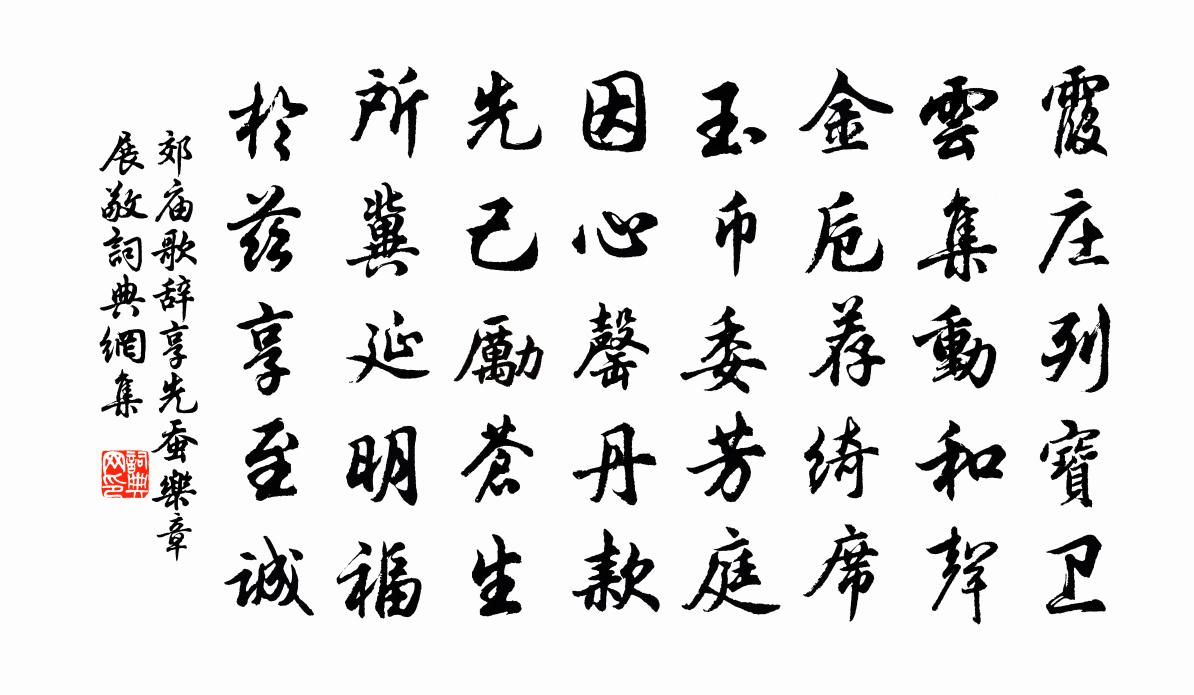 霞庄列寶卫
雲集動和聲
金卮荐綺席
玉币委芳庭
因心罄丹款
先己勵蒼生
所冀延明福
於兹享至誠
郊庙歌辞享先蚕樂章
展敬詞典網集
詞典网印